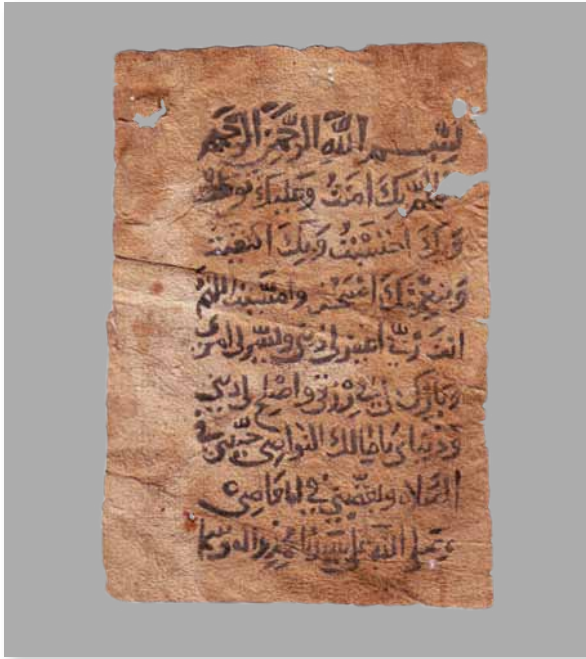 بسم الله الرحمن الرحيم
اللهم بك امنت وعليك توكلت
وبك
وبنعمتك اصبحت وامسيت اللهم
انت ربي اغفر لي ذنبي ويسر لي امري
وبارك لي في رزقي واصلح لي ديني
ودنياي يا مالك النواصي حببني في
الصلاه وبغضني في المعاصي
وصلى الله على سيدنا محمد واله وسلم